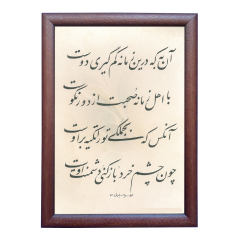 آن به که درین زمانه کم گیری دوست
با اهل زمانه صحبت از دور نکوست
آنکس که بجملگی تو را تکیه بر اوست
چون چشم خرد باز کنی دشمنت اوست